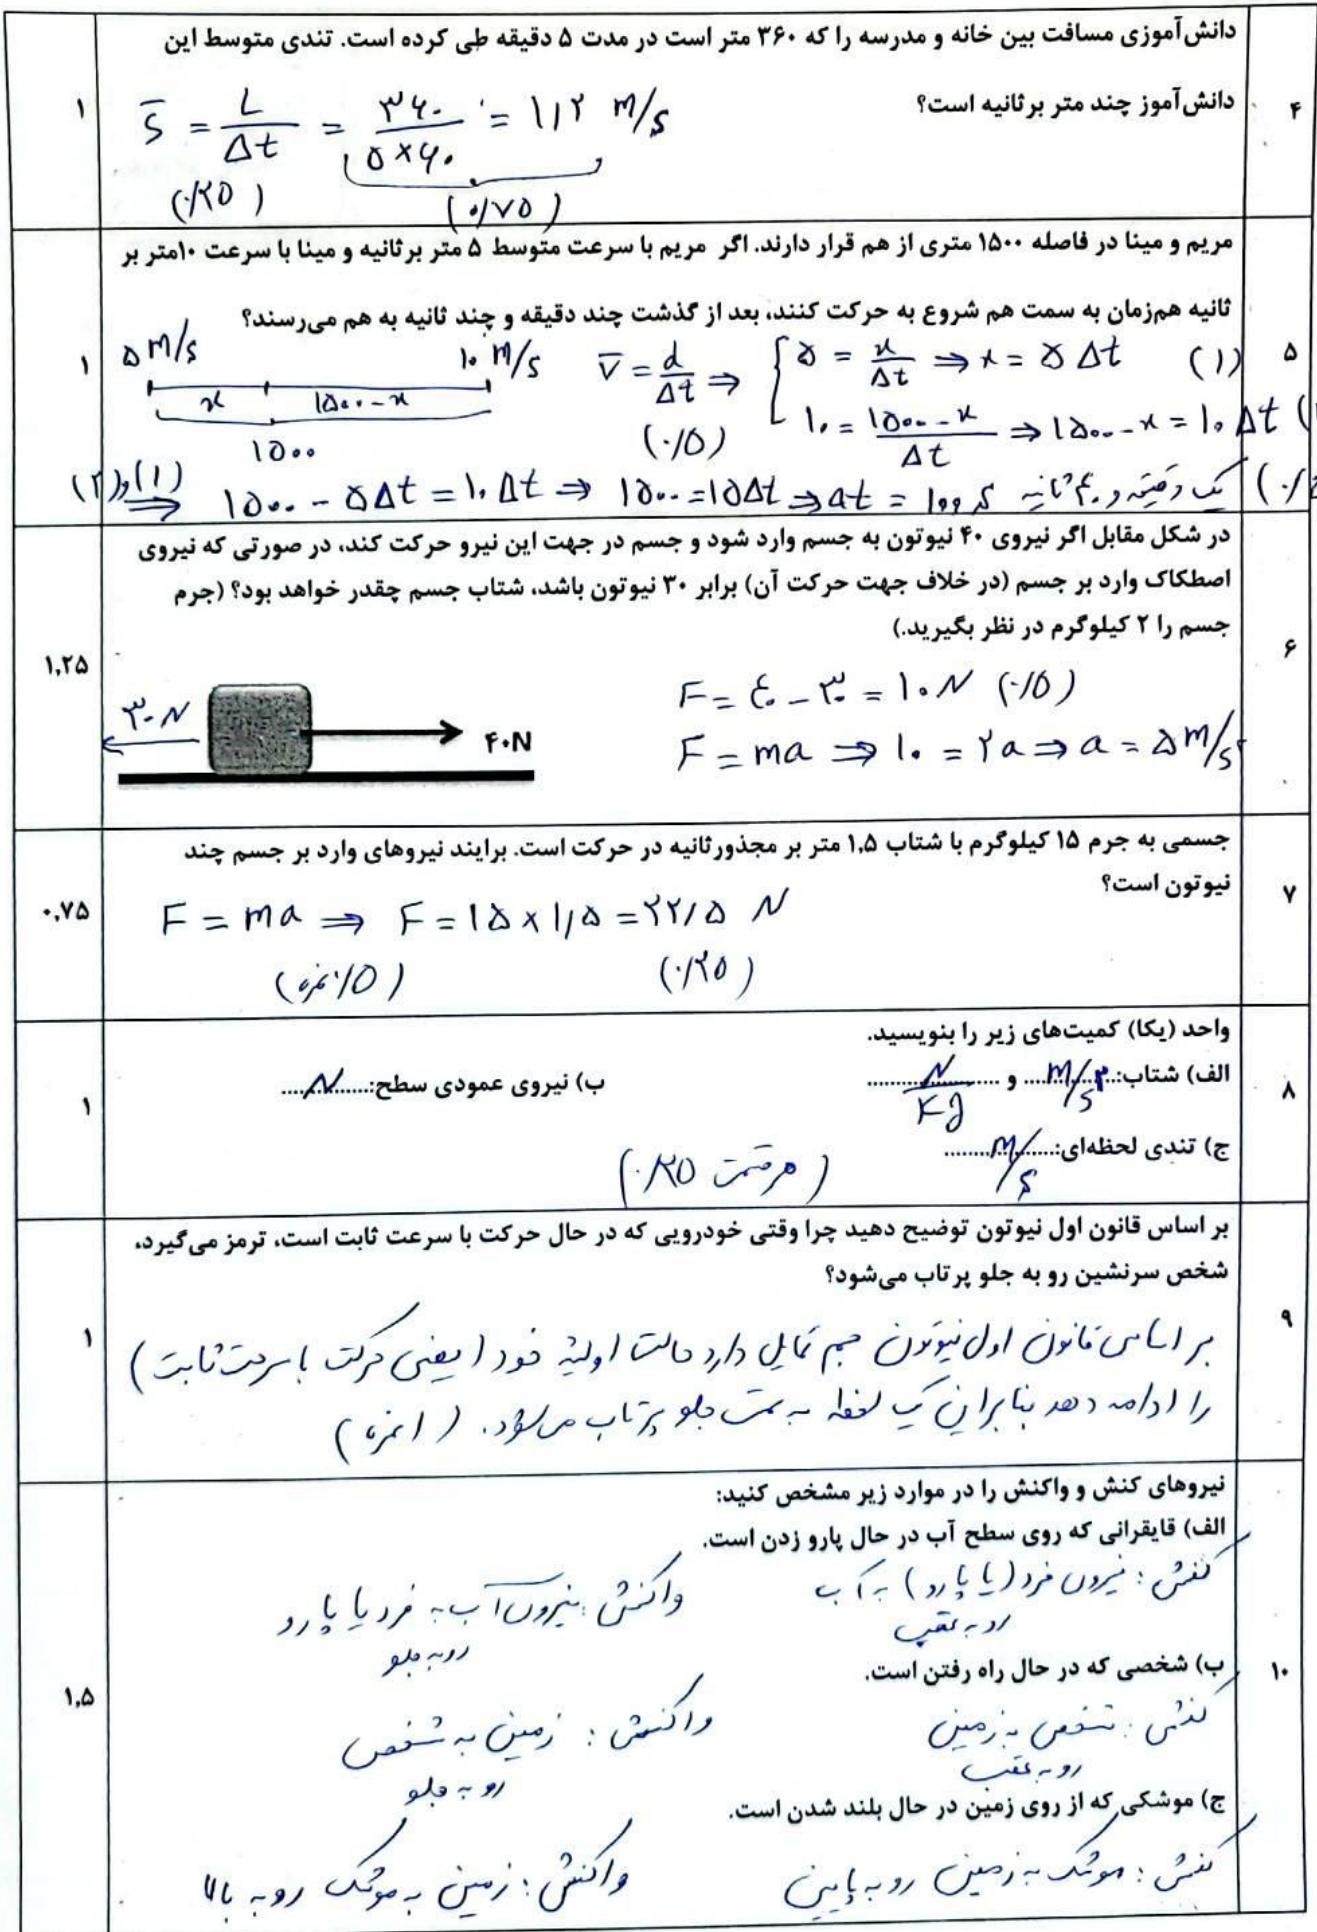 دانش‌آموزی مسافت بین خانه و مدرسه را که ۳۶۰ متر است در مدت ۵ دقیقه طی کرده است. تندی متوسط این
۴ دانش‌آموز چند متر بر ثانیه است؟ ۱
s̄ = L/Δt = ۳۶۰/(۵×۶۰) = ۱/۲ m/s
(۰/۲۵) (۰/۷۵)
مریم و مینا در فاصله ۱۵۰۰ متری از هم قرار دارند. اگر مریم با سرعت متوسط ۵ متر برثانیه و مینا با سرعت ۱۰متر بر
ثانیه هم‌زمان به سمت هم شروع به حرکت کنند، بعد از گذشت چند دقیقه و چند ثانیه به هم می‌رسند؟
۵ ۱
۵ m/s ۱۰ m/s v̄ = d/Δt ⇒ ۵ = x/Δt ⇒ x = ۵ Δt (۱)
x ۱۵۰۰-x
۱۵۰۰ (۰/۵) ۱۰ = (۱۵۰۰-x)/Δt ⇒ ۱۵۰۰-x = ۱۰ Δt
(۱) و (۲) ⇒ ۱۵۰۰ - ۵Δt = ۱۰Δt ⇒ ۱۵۰۰ = ۱۵Δt ⇒ Δt = ۱۰۰ s یک دقیقه و ۴۰ ثانیه
در شکل مقابل اگر نیروی ۴۰ نیوتون به جسم وارد شود و جسم در جهت این نیرو حرکت کند، در صورتی که نیروی
اصطکاک وارد بر جسم (در خلاف جهت حرکت آن) برابر ۳۰ نیوتون باشد، شتاب جسم چقدر خواهد بود؟ (جرم
جسم را ۲ کیلوگرم در نظر بگیرید.)
۶ ۱,۲۵
F = ۴۰ - ۳۰ = ۱۰ N (۰/۵)
۳۰ N ۴۰N
F = ma ⇒ ۱۰ = ۲a ⇒ a = ۵ m/s²
جسمی به جرم ۱۵ کیلوگرم با شتاب ۱,۵ متر بر مجذورثانیه در حرکت است. برایند نیروهای وارد بر جسم چند
۷ نیوتون است؟ ۰,۷۵
F = ma ⇒ F = ۱۵ × ۱/۵ = ۲۲/۵ N
(۰/۵ نمره) (۰/۲۵)
واحد (یکا) کمیت‌های زیر را بنویسید.
۸ الف) شتاب:....m/s².... و ....N/Kg.... ب) نیروی عمودی سطح:....N.... ۱
ج) تندی لحظه‌ای:....m/s....
(هر قسمت ۰/۲۵)
بر اساس قانون اول نیوتون توضیح دهید چرا وقتی خودرویی که در حال حرکت با سرعت ثابت است، ترمز می‌گیرد،
شخص سرنشین رو به جلو پرتاب می‌شود؟
۹ ۱
بر اساس قانون اول نیوتون جسم تمایل دارد حالت اولیه خود (یعنی حرکت با سرعت ثابت)
را ادامه دهد بنابراین یک لحظه به سمت جلو پرتاب می‌شود. (۱ نمره)
نیروهای کنش و واکنش را در موارد زیر مشخص کنید:
الف) قایقرانی که روی سطح آب در حال پارو زدن است.
کنش: نیروی فرد (یا پارو) به آب واکنش: نیروی آب به فرد یا پارو
رو به عقب رو به جلو
۱۰ ب) شخصی که در حال راه رفتن است. ۱,۵
کنش: شخص به زمین واکنش: زمین به شخص
رو به عقب رو به جلو
ج) موشکی که از روی زمین در حال بلند شدن است.
کنش: موشک به زمین رو به پایین واکنش: زمین به موشک رو به بالا